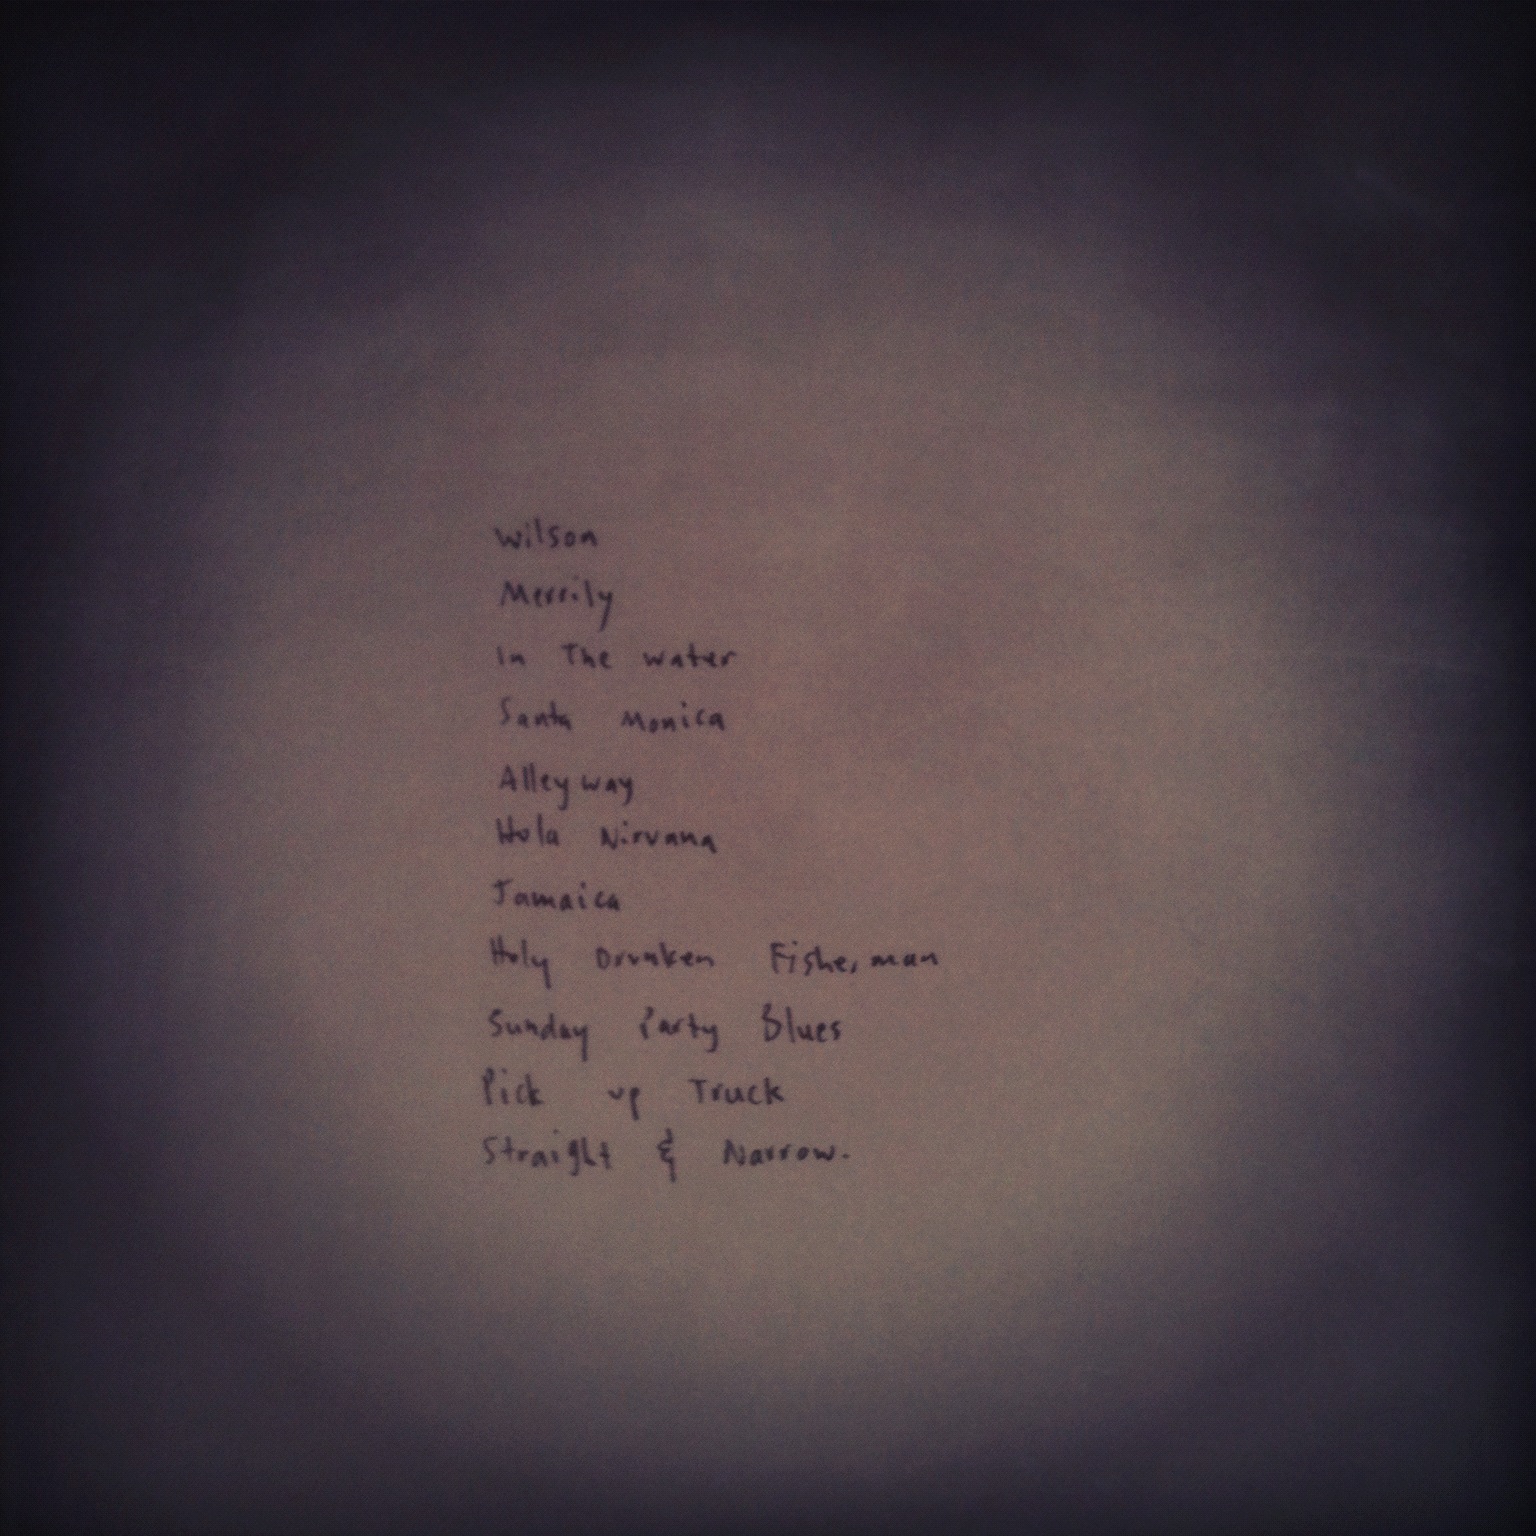 Wilson
Merrily
In The water
Santa Monica
Alleyway
Hola Nirvana
Jamaica
Holy Drunken Fisherman
Sunday Party Blues
Pick up Truck
Straight & Narrow.